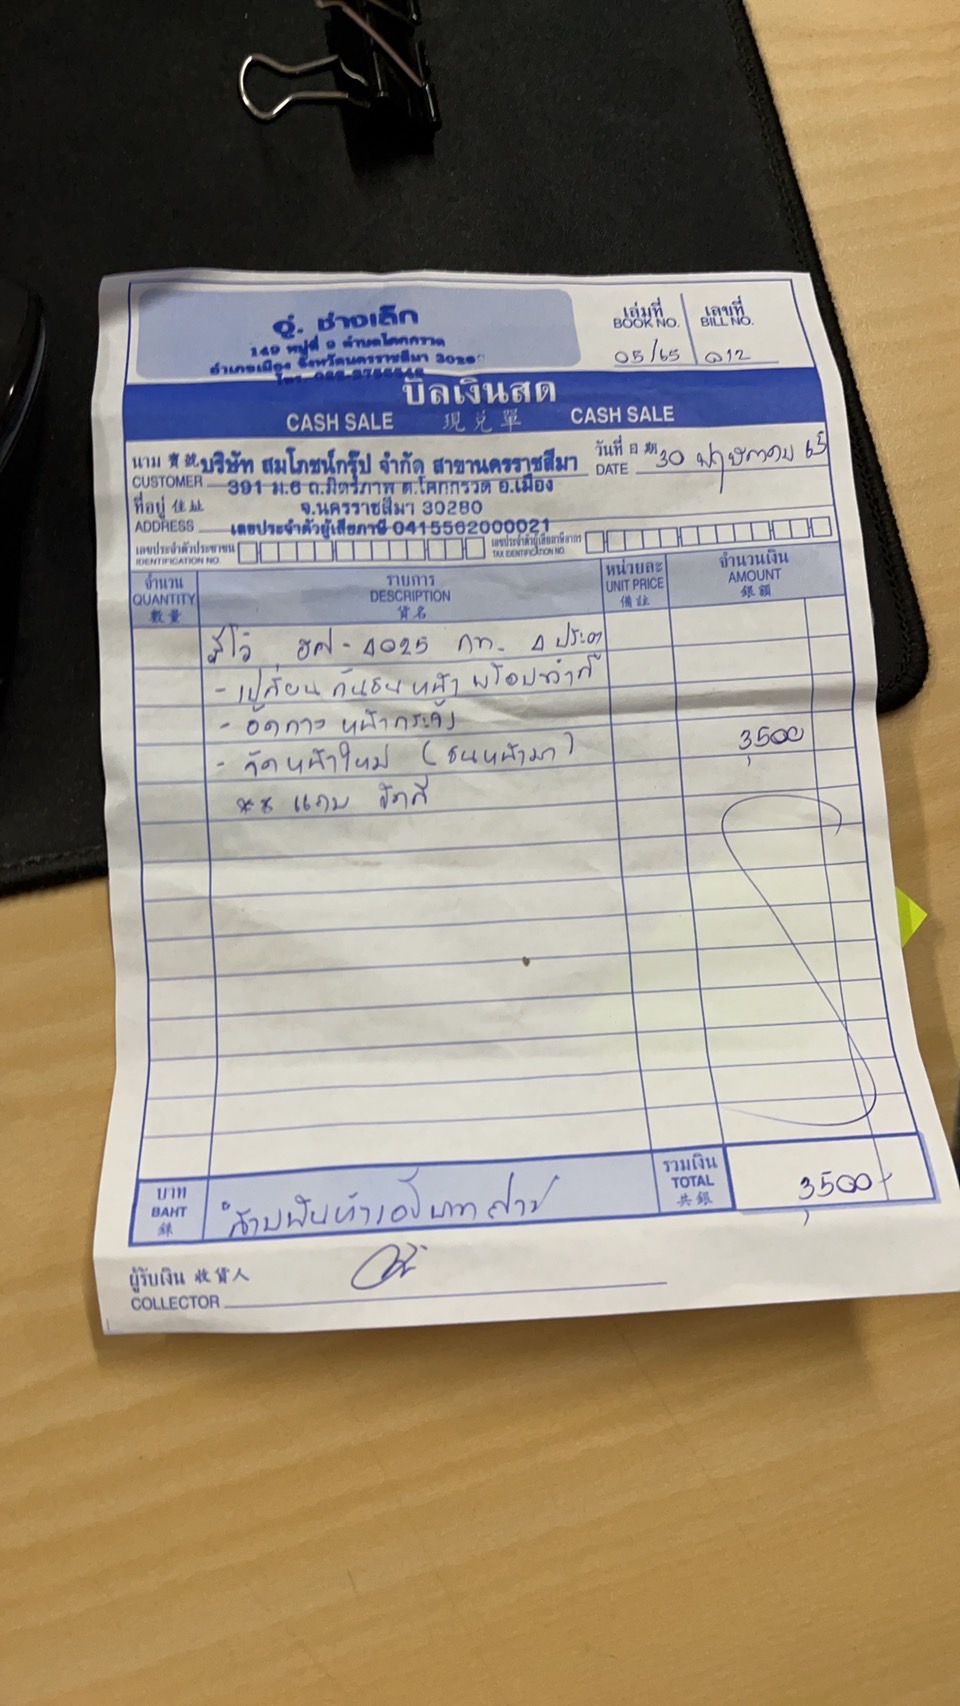 อู่. ช่างเล็ก
149 หมู่ที่ 9 ตำบลโคกกรวด
อำเภอเมือง จังหวัดนครราชสีมา 30280
โทร.
เล่มที่ เลขที่
BOOK NO. BILL NO.
05/65 012
บิลเงินสด
CASH SALE 現兌單 CASH SALE
นาม 寶號 บริษัท สมโภชน์กรุ๊ป จำกัด สาขานครราชสีมา
CUSTOMER 391 ม.6 ถ.มิตรภาพ ต.โคกกรวด อ.เมือง
วันที่ 日期 30 พฤษภาคม 65
DATE
ที่อยู่ 住址 จ.นครราชสีมา 30280
ADDRESS เลขประจำตัวผู้เสียภาษี 0415562000021
เลขประจำตัวประชาชน เลขประจำตัวผู้เสียภาษีอากร
IDENTIFICATION NO. TAX IDENTIFICATION NO.
จำนวน รายการ หน่วยละ จำนวนเงิน
QUANTITY DESCRIPTION UNIT PRICE AMOUNT
數量 貨名 備註 銀額
รีโว่ 4025 กท. 4 ประตู
- เปลี่ยน กันชนหน้า พร้อมทำสี
- อัดกาว หน้ากระจัง
- หน้าใหม่ (ชนหน้ามา) 3,500
** แถม ขัดสี
บาท สามพันห้าร้อยบาทถ้วน รวมเงิน 3,500
BAHT TOTAL
銖 共銀
ผู้รับเงิน 收貨人
COLLECTOR